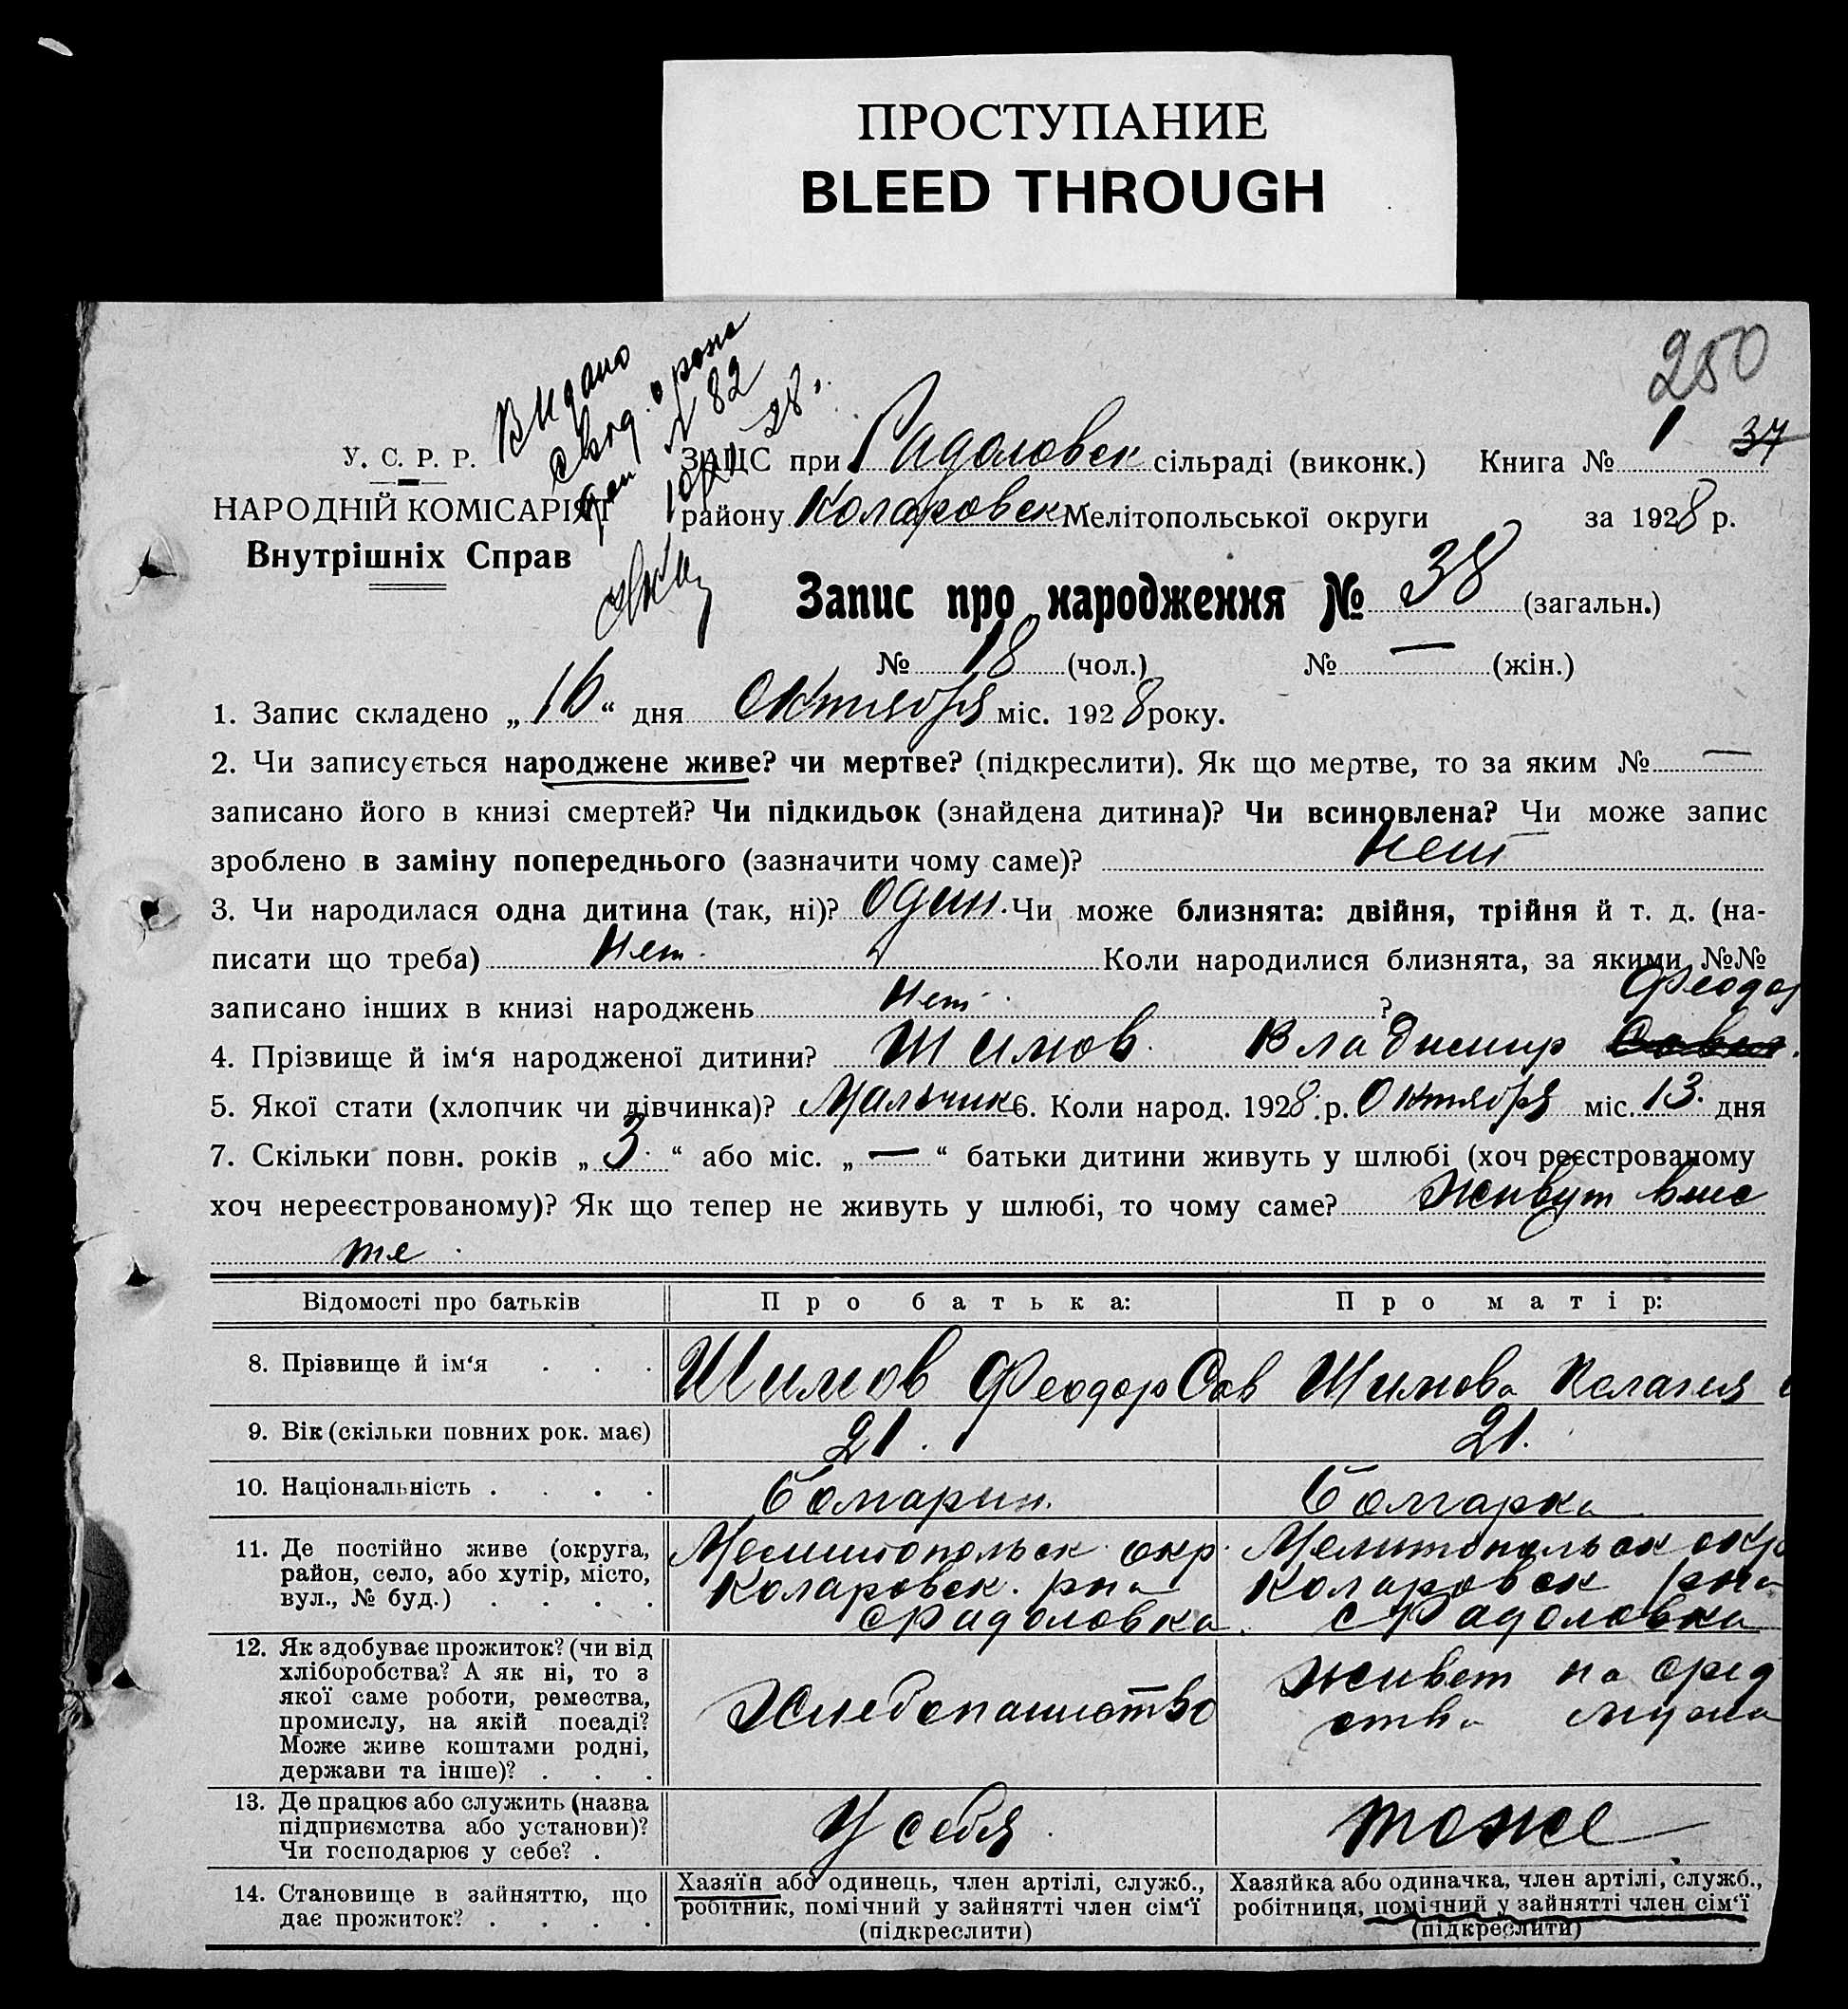 ПРОСТУПАНИЕ
BLEED THROUGH
250
Видано
свод. о рожд
№ 82
28.
У. С. Р. Р.
НАРОДНІЙ КОМІСАРІЯТ
Внутрішніх Справ
ЗАЦС при Радоловск сільраді (виконк.) Книга № 1 34
району Коларовск Мелітопольської округи за 1928 р.
Запис про народження № 38 (загальн.)
№ 18 (чол.) № — (жін.)
1. Запис складено „16“ дня Октября міс. 1928 року.
2. Чи записується народжене живе? чи мертве? (підкреслити). Як що мертве, то за яким № —
записано його в книзі смертей? Чи підкидьок (знайдена дитина)? Чи всиновлена? Чи може запис
зроблено в заміну попереднього (зазначити чому саме)? Нет
3. Чи народилася одна дитина (так, ні)? один. Чи може близнята: двійня, трійня й т. д. (на-
писати що треба) Нет. Коли народилися близнята, за якими №№
записано інших в книзі народжень Нет ?
Феодор
4. Прізвище й ім‘я народженої дитини? Шимов Владимир
5. Якої стати (хлопчик чи дівчинка)? Мальчик 6. Коли народ. 1928 р. Октября міс. 13. дня
7. Скільки повн. років „3“ або міс. „—“ батьки дитини живуть у шлюбі (хоч реєстрованому
хоч нереєстрованому)? Як що тепер не живуть у шлюбі, то чому саме? Живут вмес
те
Відомості про батьків Про батька: Про матір:
8. Прізвище й ім‘я . . . Шимов Феодор Сав Шимова Пелагея
9. Вік (скільки повних рок. має) 21. 21.
10. Національність . . . . Болгарин. Болгарка
11. Де постійно живе (округа, район, село, або хутір, місто, вул., № буд.) . . . .
Мелитопольск. окр. Коларовск. рна с Радоловка.
Мелитопольск окр Коларовск рна с Радоловка
12. Як здобуває прожиток? (чи від хліборобства? А як ні, то з якої саме роботи, ремества, промислу, на якій посаді? Може живе коштами родні, держави та інше)? . . .
Хлебопашество
живет на сред
ства мужа
13. Де працює або служить (назва підприємства або установи)? Чи господарює у себе? .
У себя
тоже
14. Становище в зайняттю, що дає прожиток? . . . .
Хазяїн або одинець, член артілі, служб., робітник, помічний у зайнятті член сім‘ї (підкреслити)
Хазяйка або одиначка, член артілі, служб., робітниця, помічний у зайнятті член сім‘ї (підкреслити)